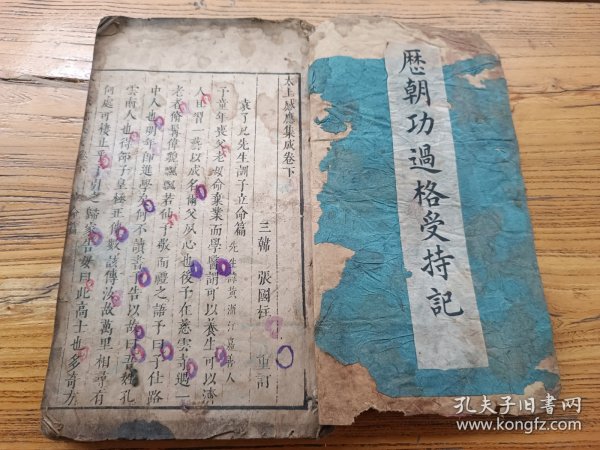 歷朝功過格受持記
太上感應集成卷下
三韓 張國柱 重訂
袁了凡先生訓子立命篇 先生諱黃浙江嘉善人
予童年喪父老母命棄業而學醫謂可以養生可以濟
人且習一藝以成名爾父夙心也後予在慈雲寺遇一
老者修髯偉貌飄飄若仙予敬而禮之語予曰子仕路
中人也明年即進學矣何不讀書予告以故曰吾姓孔
雲南人也得邵子皇極正傳數該傳汝故萬里相尋有
何處可棲止乎予引之歸家告母曰此高士也多奇方
孔夫子旧書网
www.kongfz.com